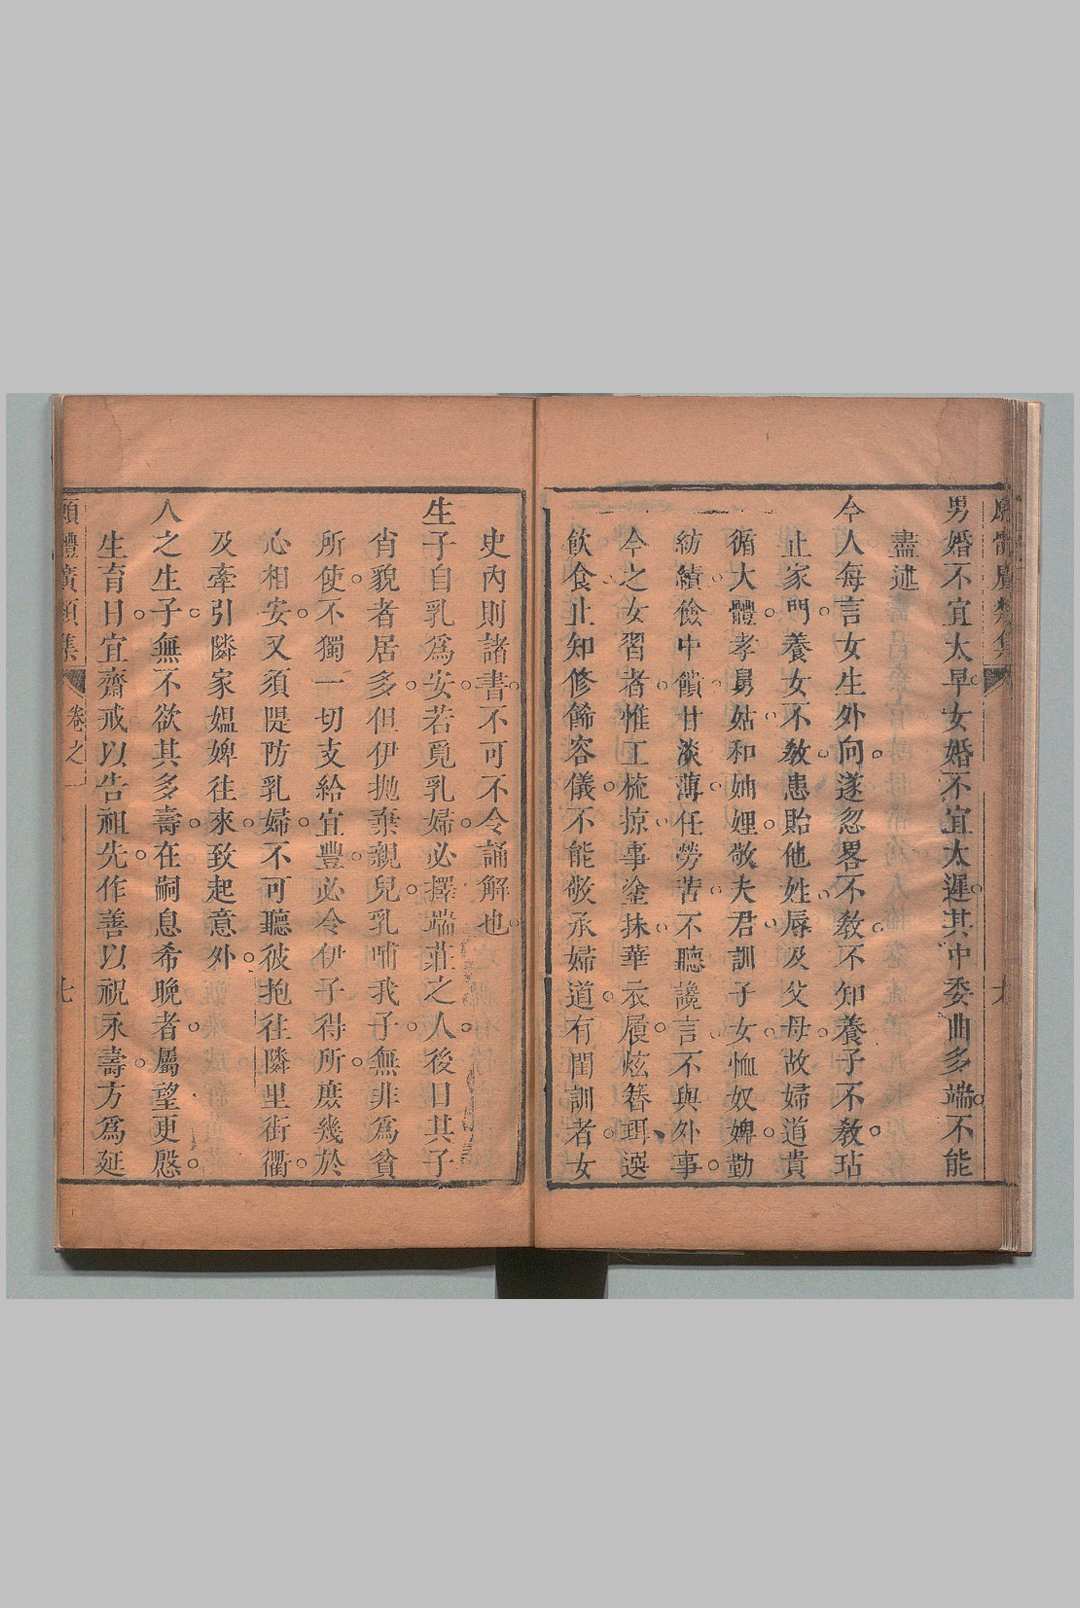 男婚不宜太早女婚不宜太遲其中委曲多端不能
盡述
今人每言女生外向遂忽畧不敎不知養子不敎玷
止家門養女不敎患貽他姓辱及父母故婦道貴
循大體孝舅姑和妯娌敬夫君訓子女恤奴婢勤
紡績儉中饋甘淡薄任勞苦不聽讒言不與外事
今之女習者惟工梳掠事塗抹華衣屐炫簪珥選
飲食止知修餙容儀不能敬承婦道有閨訓者女
史內則諸書不可不令誦解也
生子自乳爲安若覓乳婦必擇端莊之人後日其子
肖貌者居多但伊拋棄親兒乳哺我子無非爲貧
所使不獨一切支給宜豐必令伊子得所庶幾於
心相安又須隄防乳婦不可聽彼抱往隣里街衢
及牽引隣家媼婢往來致起意外
人之生子無不欲其多壽在嗣息希晚者屬望更慇
生育日宜齋戒以告祖先作善以祝永壽方爲延
願體廣類集 卷之一 七